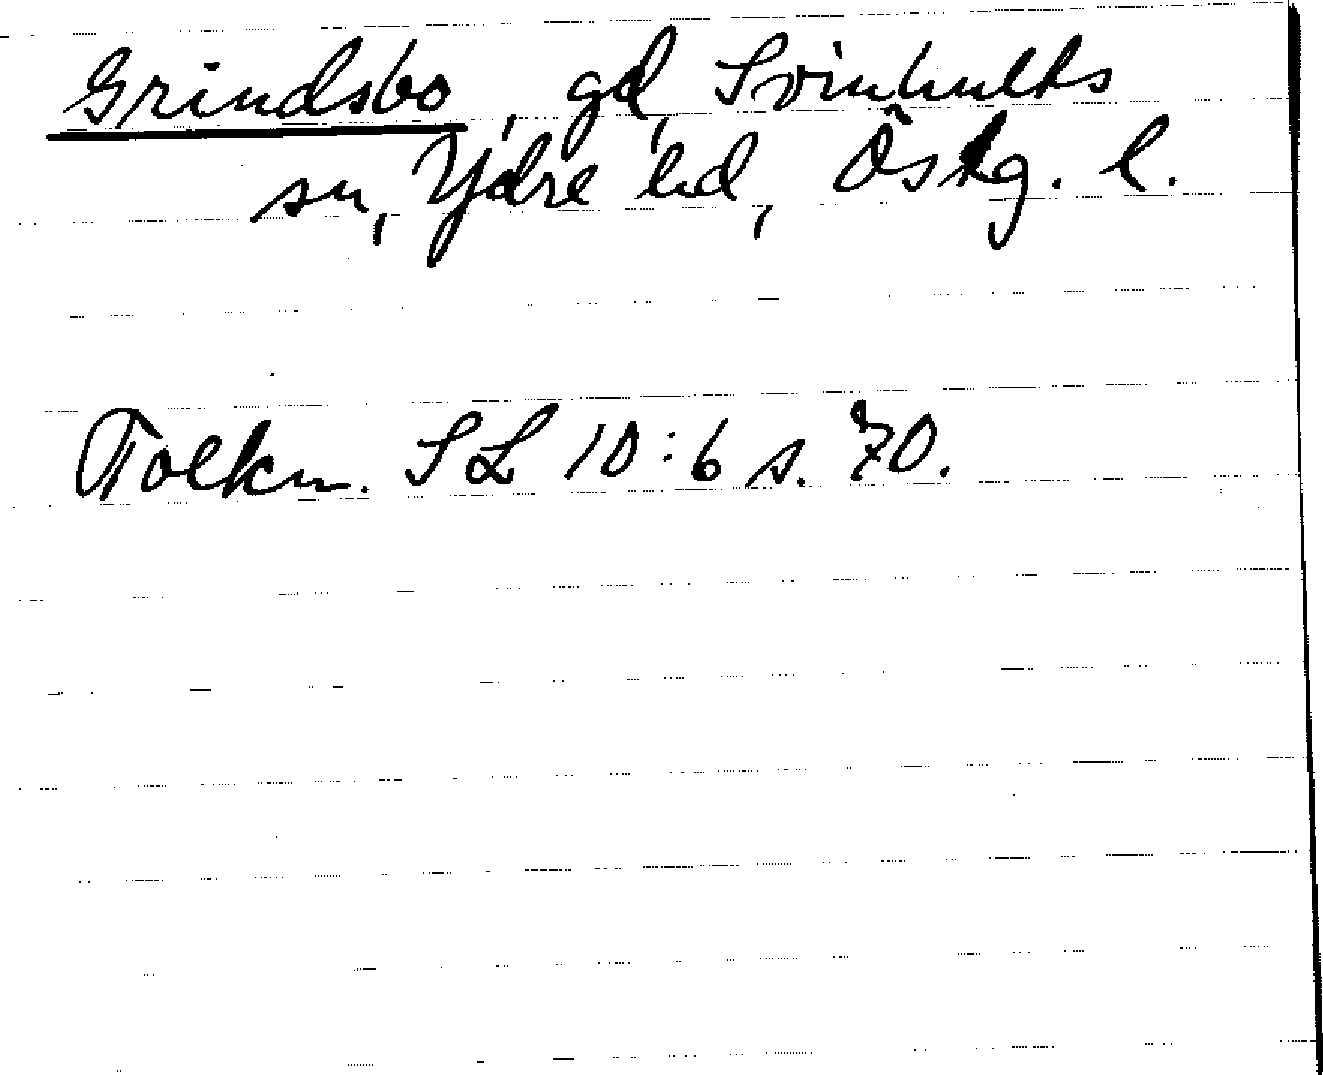 Grindsbo, gd, Svinhults
sn, Ydre hd, Östg. l.
Tolkn. SL 10:6 s. 70.